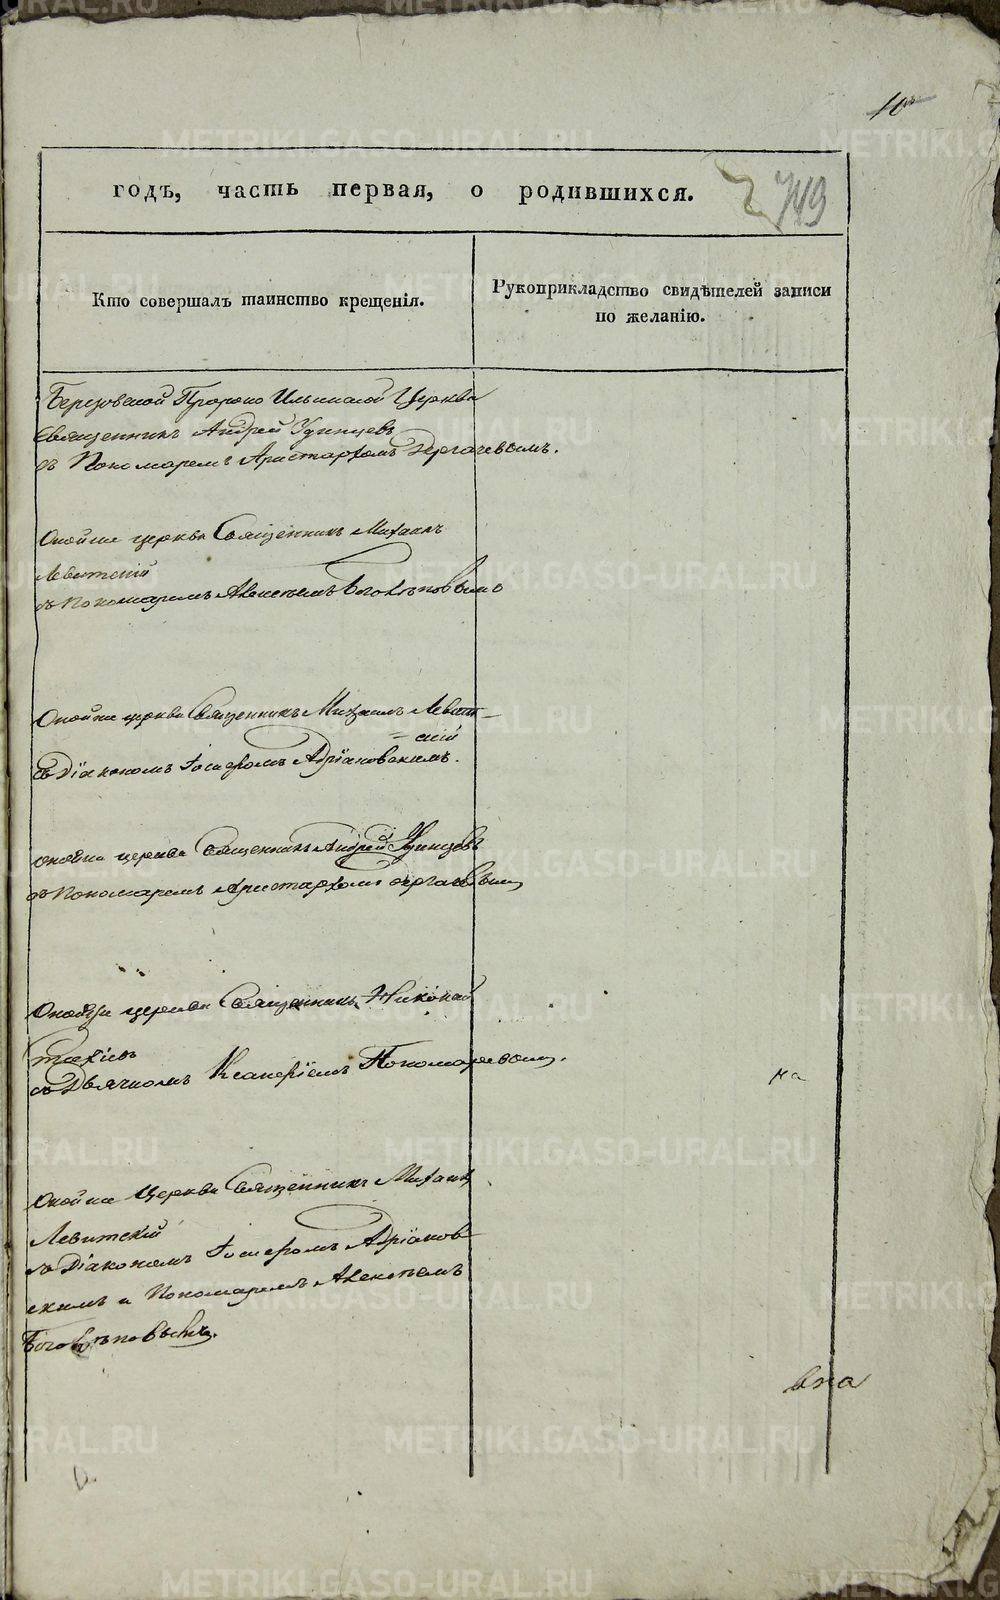 10
годъ, часть первая, о родившихся.
749
Кто совершалъ таинство крещенія.
Рукоприкладство свидѣтелей записи
по желанію.
Березовской Пророко Ильинской Церкви
Священникъ Андрей Удинцевъ
съ Пономаремъ Аристархомъ Дергачевымъ.
Оной же церкви Священникъ Михаилъ
Левитскій
съ Пономаремъ Алексѣемъ Боголѣповымъ
Оной же церкви Священникъ Михаилъ Левит-
скій
съ Діакономъ Іосифомъ Адріановскимъ.
Оной же церкви Священникъ Андрей Удинцевъ
съ Пономаремъ Аристархомъ Дергачевым
Оной же церкви Священникъ Николай
съ Дьячкомъ Пономаревым.
на
Оной же Церкви Священникъ Михаил
Левитскій
съ Діакономъ Іосифомъ Адріанов
скимъ и Пономаремъ Алексѣемъ
Боголѣповымъ.
вна
METRIKI.GASO-URAL.RU